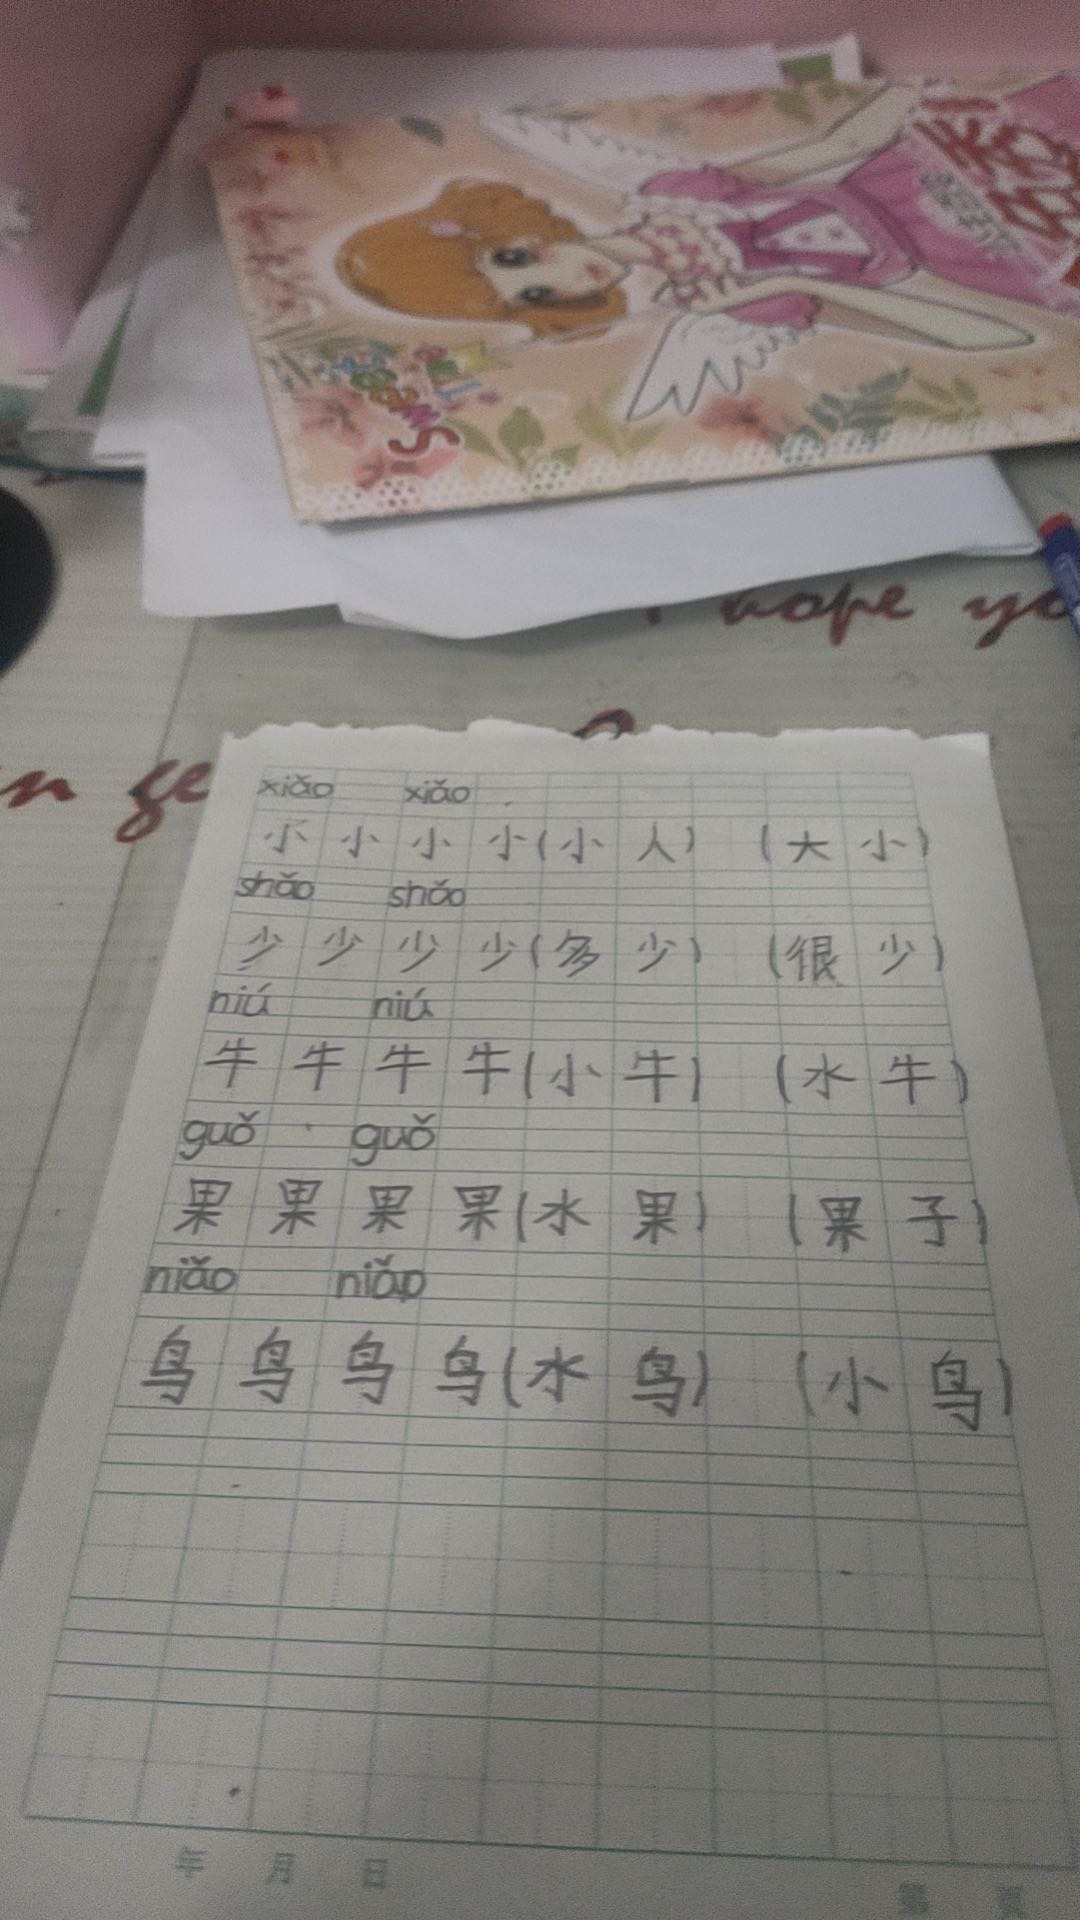 hope yo
in ge
xiǎo xiǎo
小 小 小 小(小 人) (大 小)
shǎo shǎo
少 少 少 少(多 少) (很 少)
niú niú
牛 牛 牛 牛(小 牛) (水 牛)
guǒ guǒ
果 果 果 果(水 果) (果 子)
niǎo niǎo
鸟 鸟 鸟 鸟(水 鸟) (小 鸟)
年 月 日
第 页